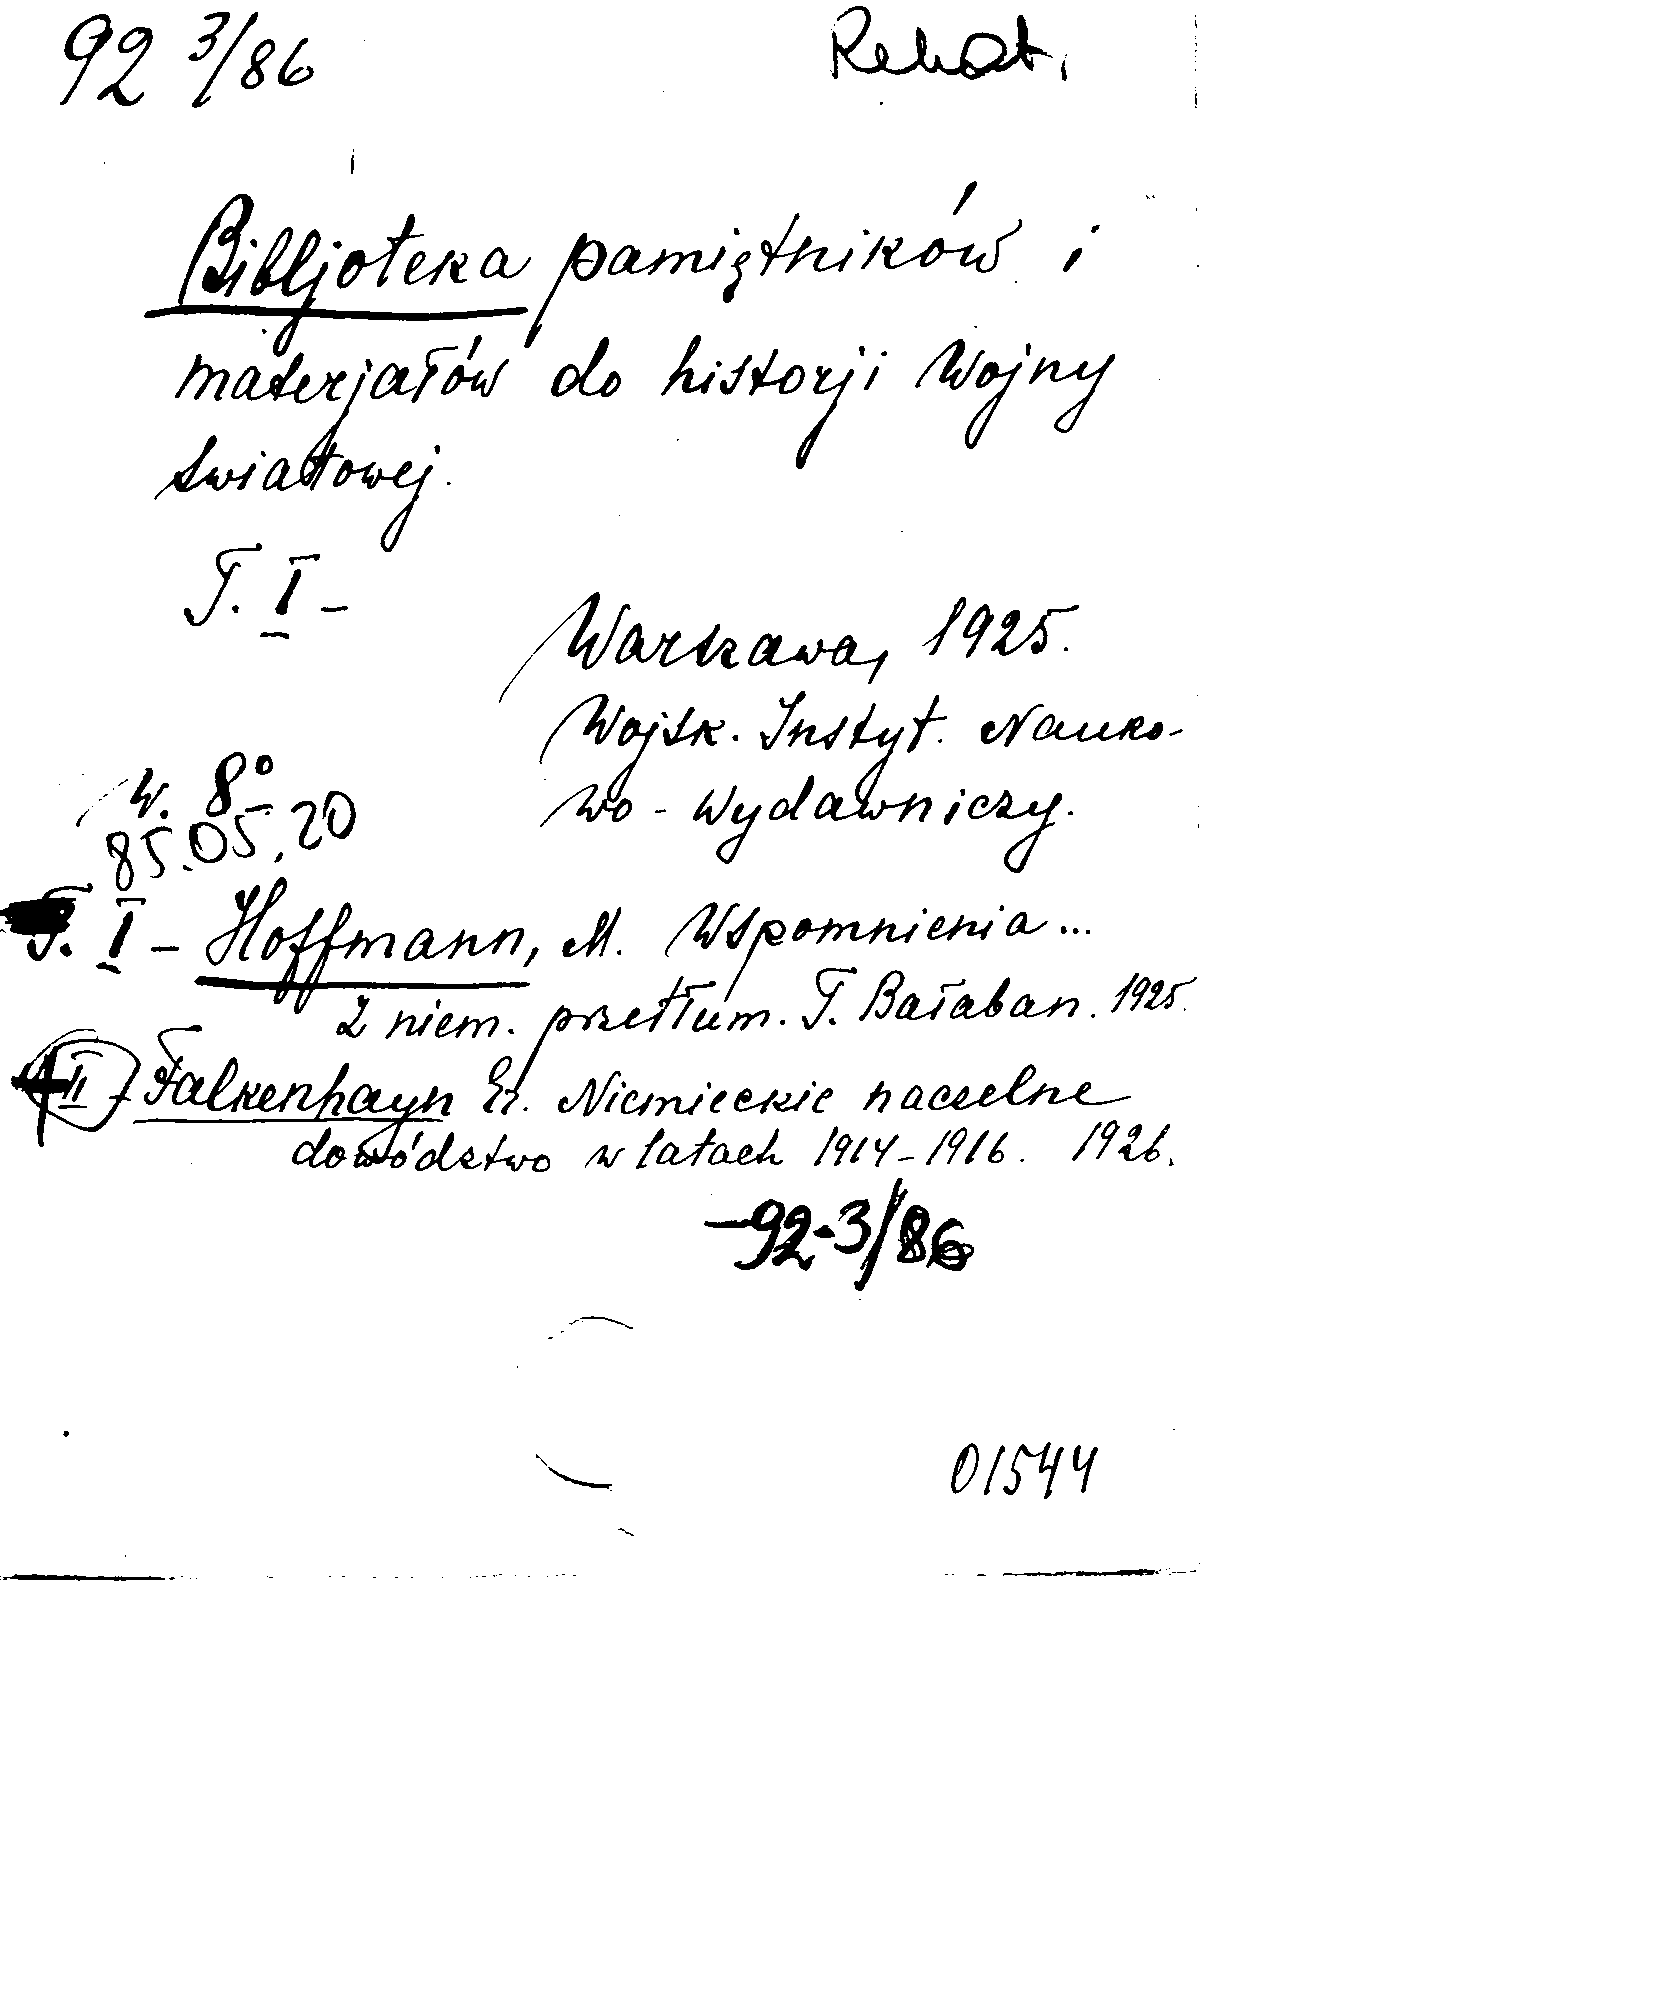 92 3/86
Rekat.
Bibljoteka pamiętników i
materjałów do historji Wojny
światowej.
T. I -
Warszawa, 1925.
Wojsk. Instyt. Nauko-
wo - Wydawniczy.
w. 8°
85.05.20
T. I - Hoffmann, M. Wspomnienia...
z niem. przetłum. T. Bałaban. 1925.
II - Falkenhayn Er. Niemieckie naczelne
dowództwo w latach 1914-1916. 1926.
-92-3/86
01544